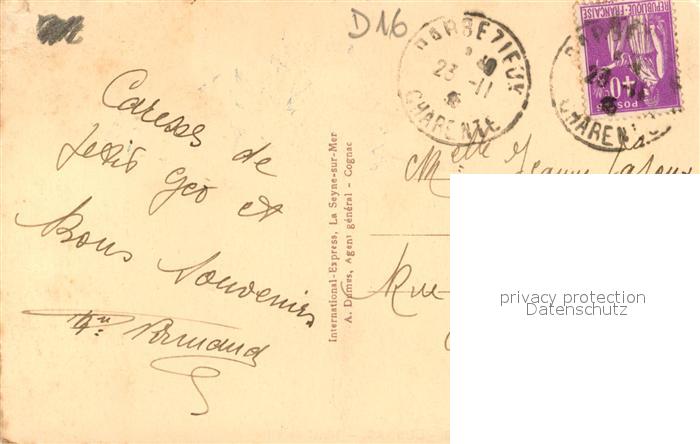 DN6
BARBEZIEUX
23 -11
CHARENTE
REPUBLIQUE FRANÇAISE
40c
POSTES
BARBEZIEUX
23 -11
CHARENTE
Caresses de
petit Geo et
Bons Souvenirs
Armand
International-Express, La Seyne-sur-Mer
A. Dumas, Agent général - Cognac
Melle Jeanne
Rue
privacy protection
Datenschutz